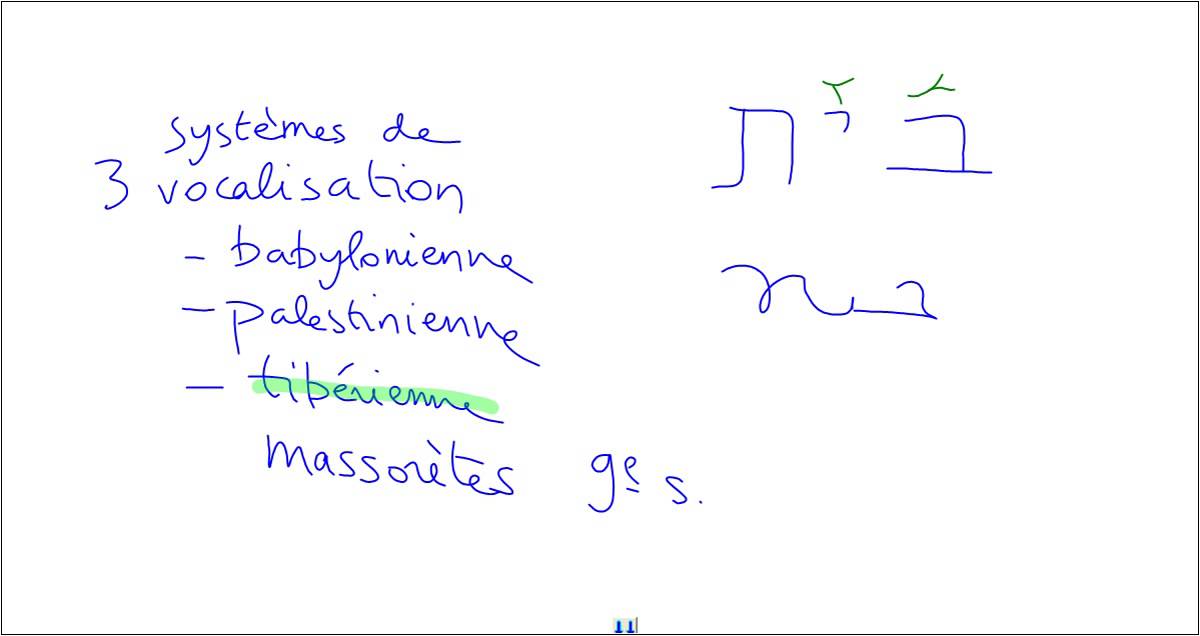 systèmes de
3 vocalisation
- babylonienne
- palestinienne
- tibérienne
massorètes 9e s.
בית